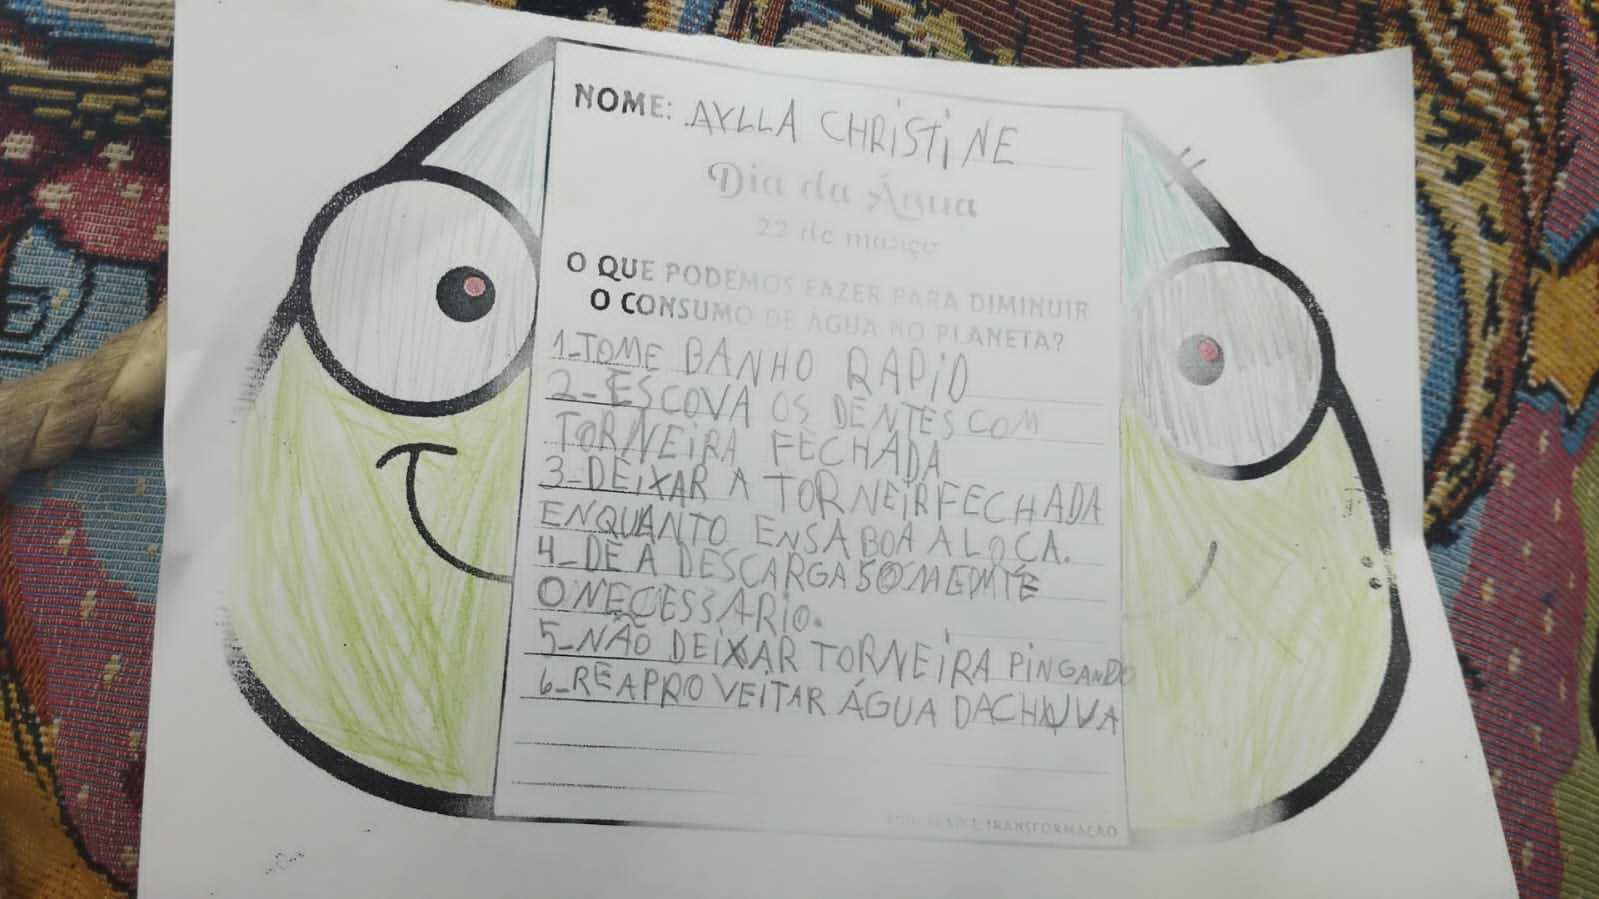 NOME: AYLLA CHRISTINE
Dia da Água
22 de março
O QUE PODEMOS FAZER PARA DIMINUIR
O CONSUMO DE ÁGUA NO PLANETA?
1-TOME BANHO RAPIO
2-ESCOVA OS DENTES COM
TORNEIRA FECHADA
3-DEIXAR A TORNEIRFECHADA
ENQUANTO ENSABOA A LOCA.
4-DE A DESCARGA SOMEMTE
O NECESSARIO.
5-NÃO DEIXAR TORNEIRA PINGANDO
6-REAPROVEITAR ÁGUA DACHUVA
TRANSFORMAÇÃO